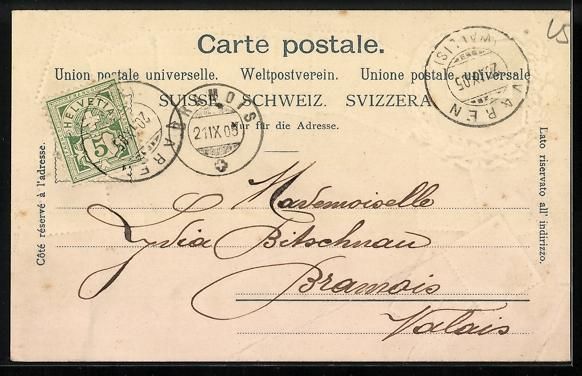 Carte postale.
Union postale universelle. Weltpostverein. Unione postale universale
SUISSE. SCHWEIZ. SVIZZERA.
Nur für die Adresse.
Côté réservé à l'adresse.
Lato riservato all' indirizzo.
HELVETIA
5
VAREN
(WALLIS)
BRAMOIS
21 IX 05
Mademoiselle
Lydia Bitschnau
Bramois
Valais